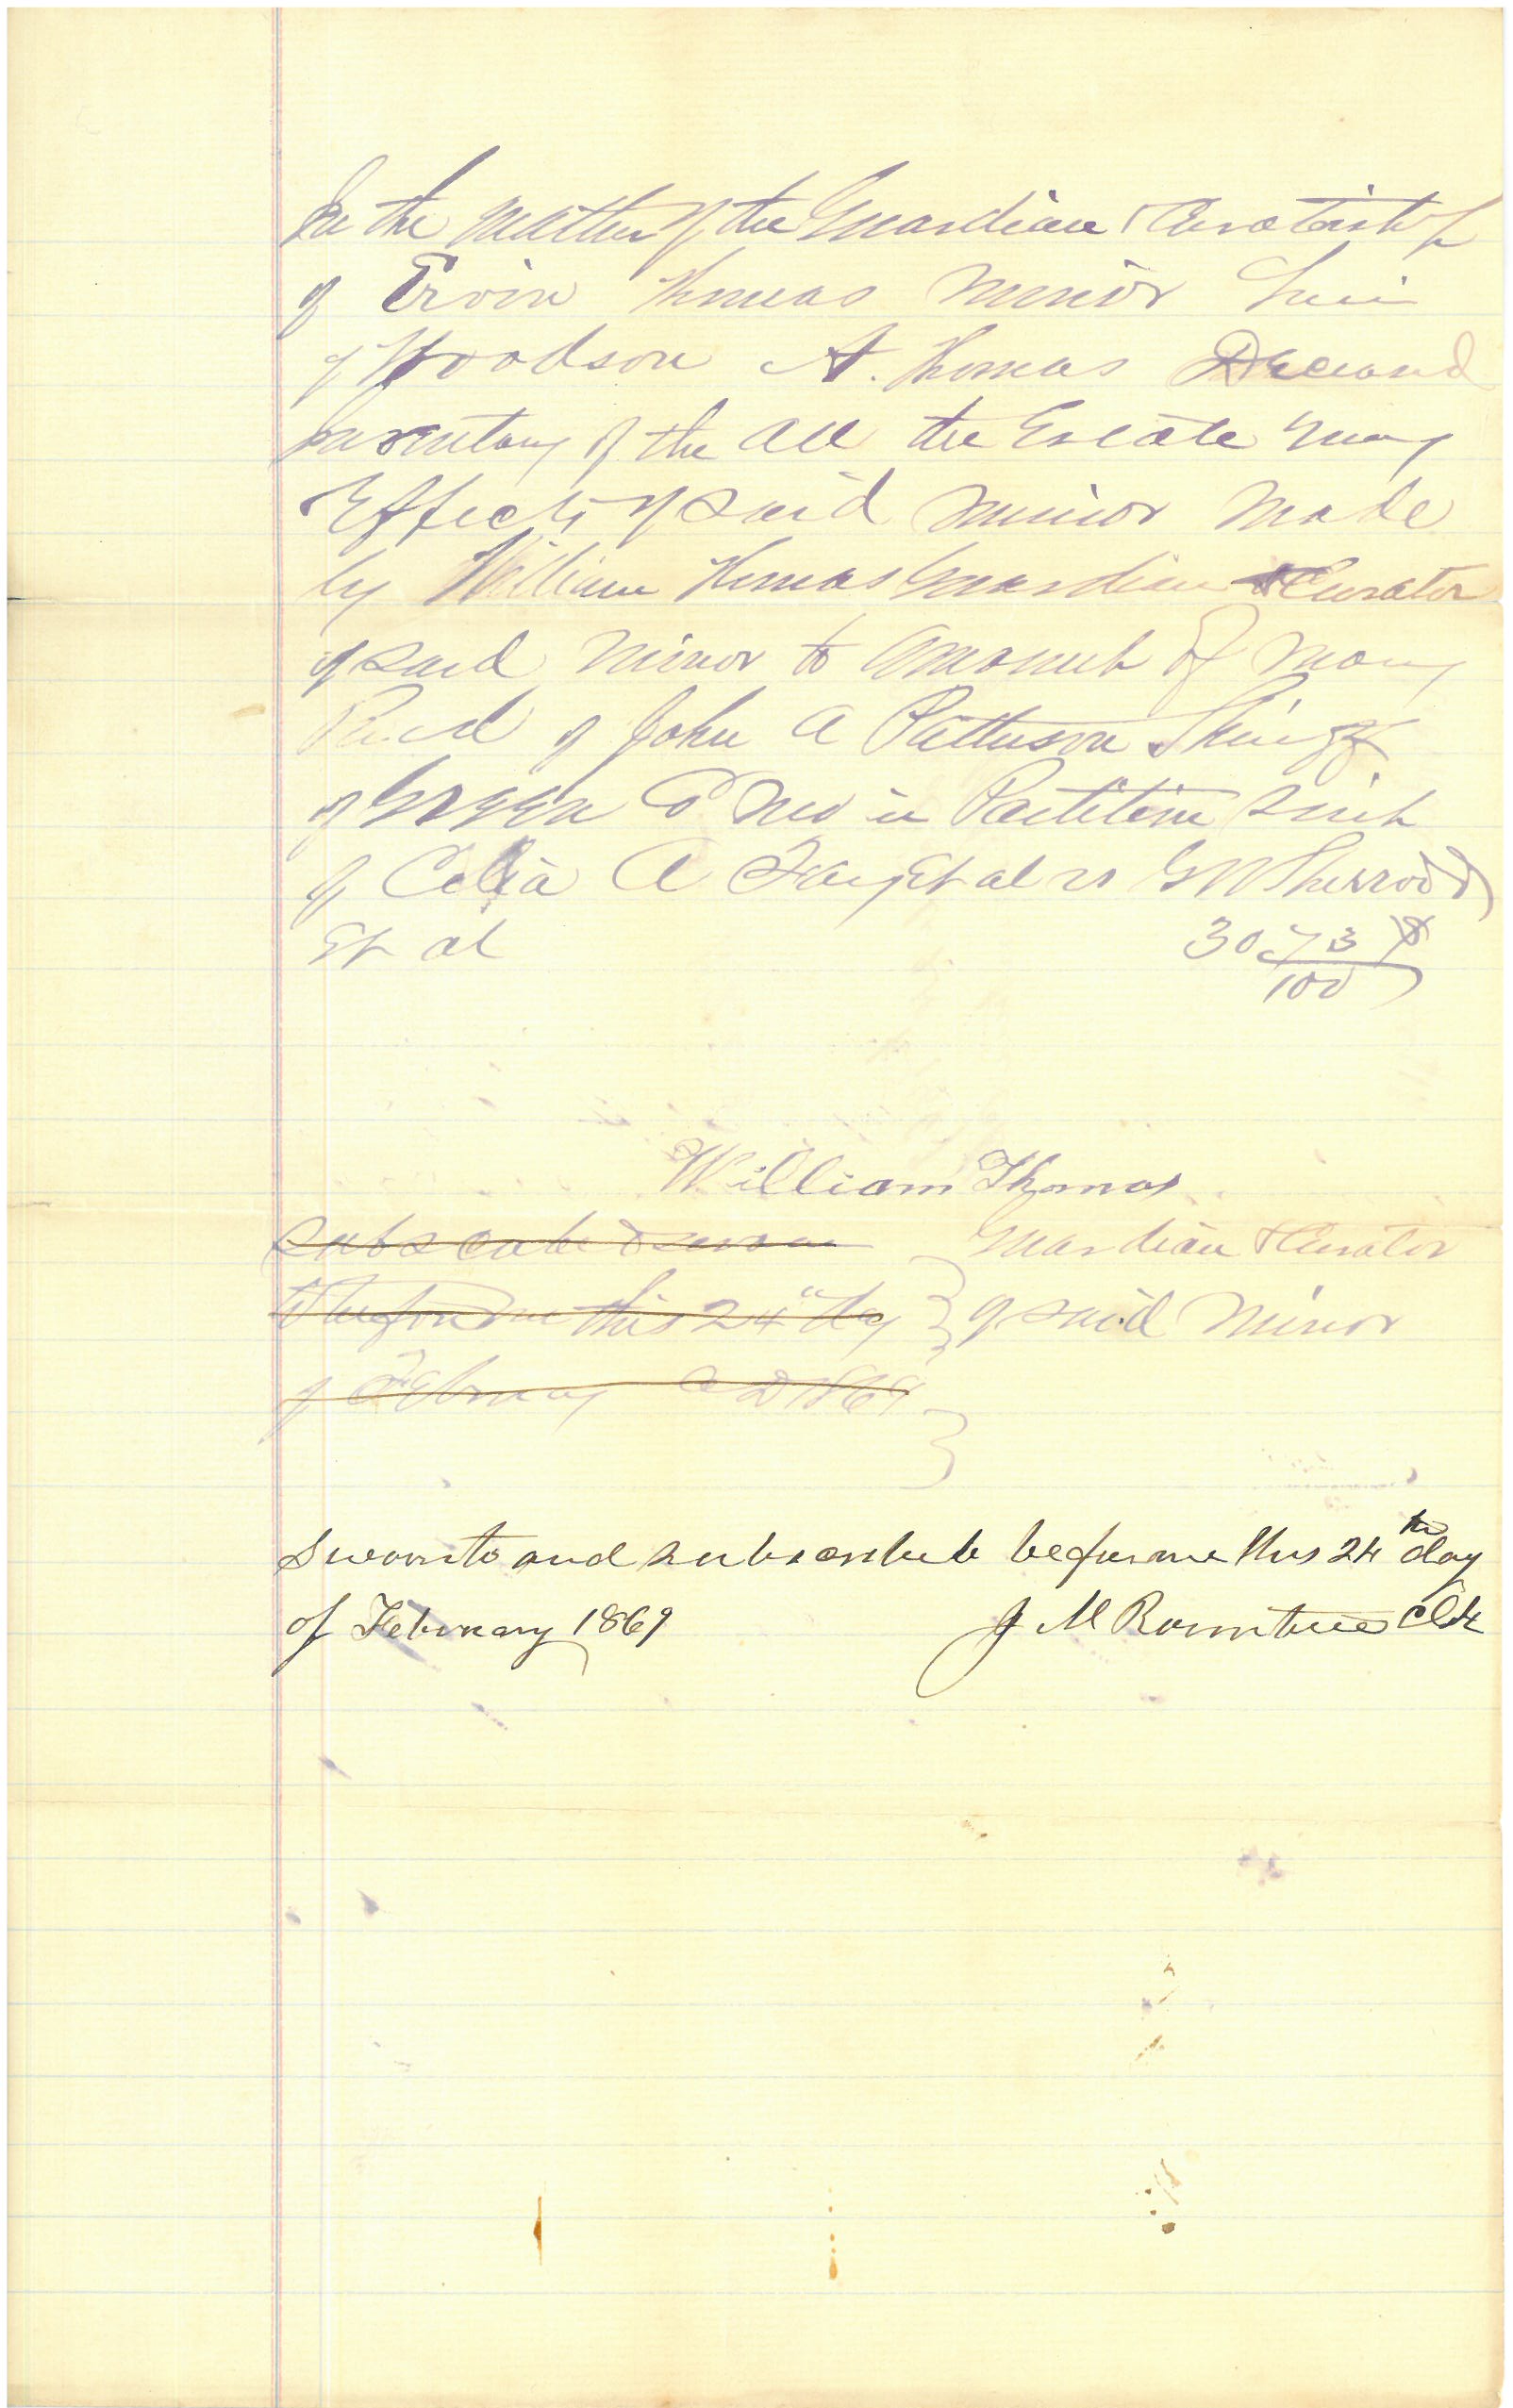 In the Matter of the Guardian & Curatorsh
of Ervin Thomas Minor heir
of Woodson A. Thomas Deceasd
Inventory of the all the Estate
Effects of said minor made
by William Thomas Guardian & Curator
of said Minor to Amount of Money
Recd of John A Patterson Shiff
of Green Co Mo in Partition suit
of Celia A et al vs G W Sherrod
Et al 30 73/100
William Thomas
Subscribe & sworn Guardian & Curator
to before me this 24" day of said Minor
of February AD 1869
Sworn to and subscribed before me this 24th day
of February 1869 J M Rountree Clk